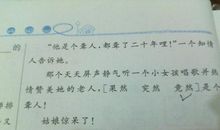 的
"他是个聋人,都聋了二十年哩!"一个知情
人告诉她。
那个天天屏声静气听一个小女孩唱歌并热
情赞美她的老人,[果然 突然 竟然]是个
聋人!
姑娘惊呆了!